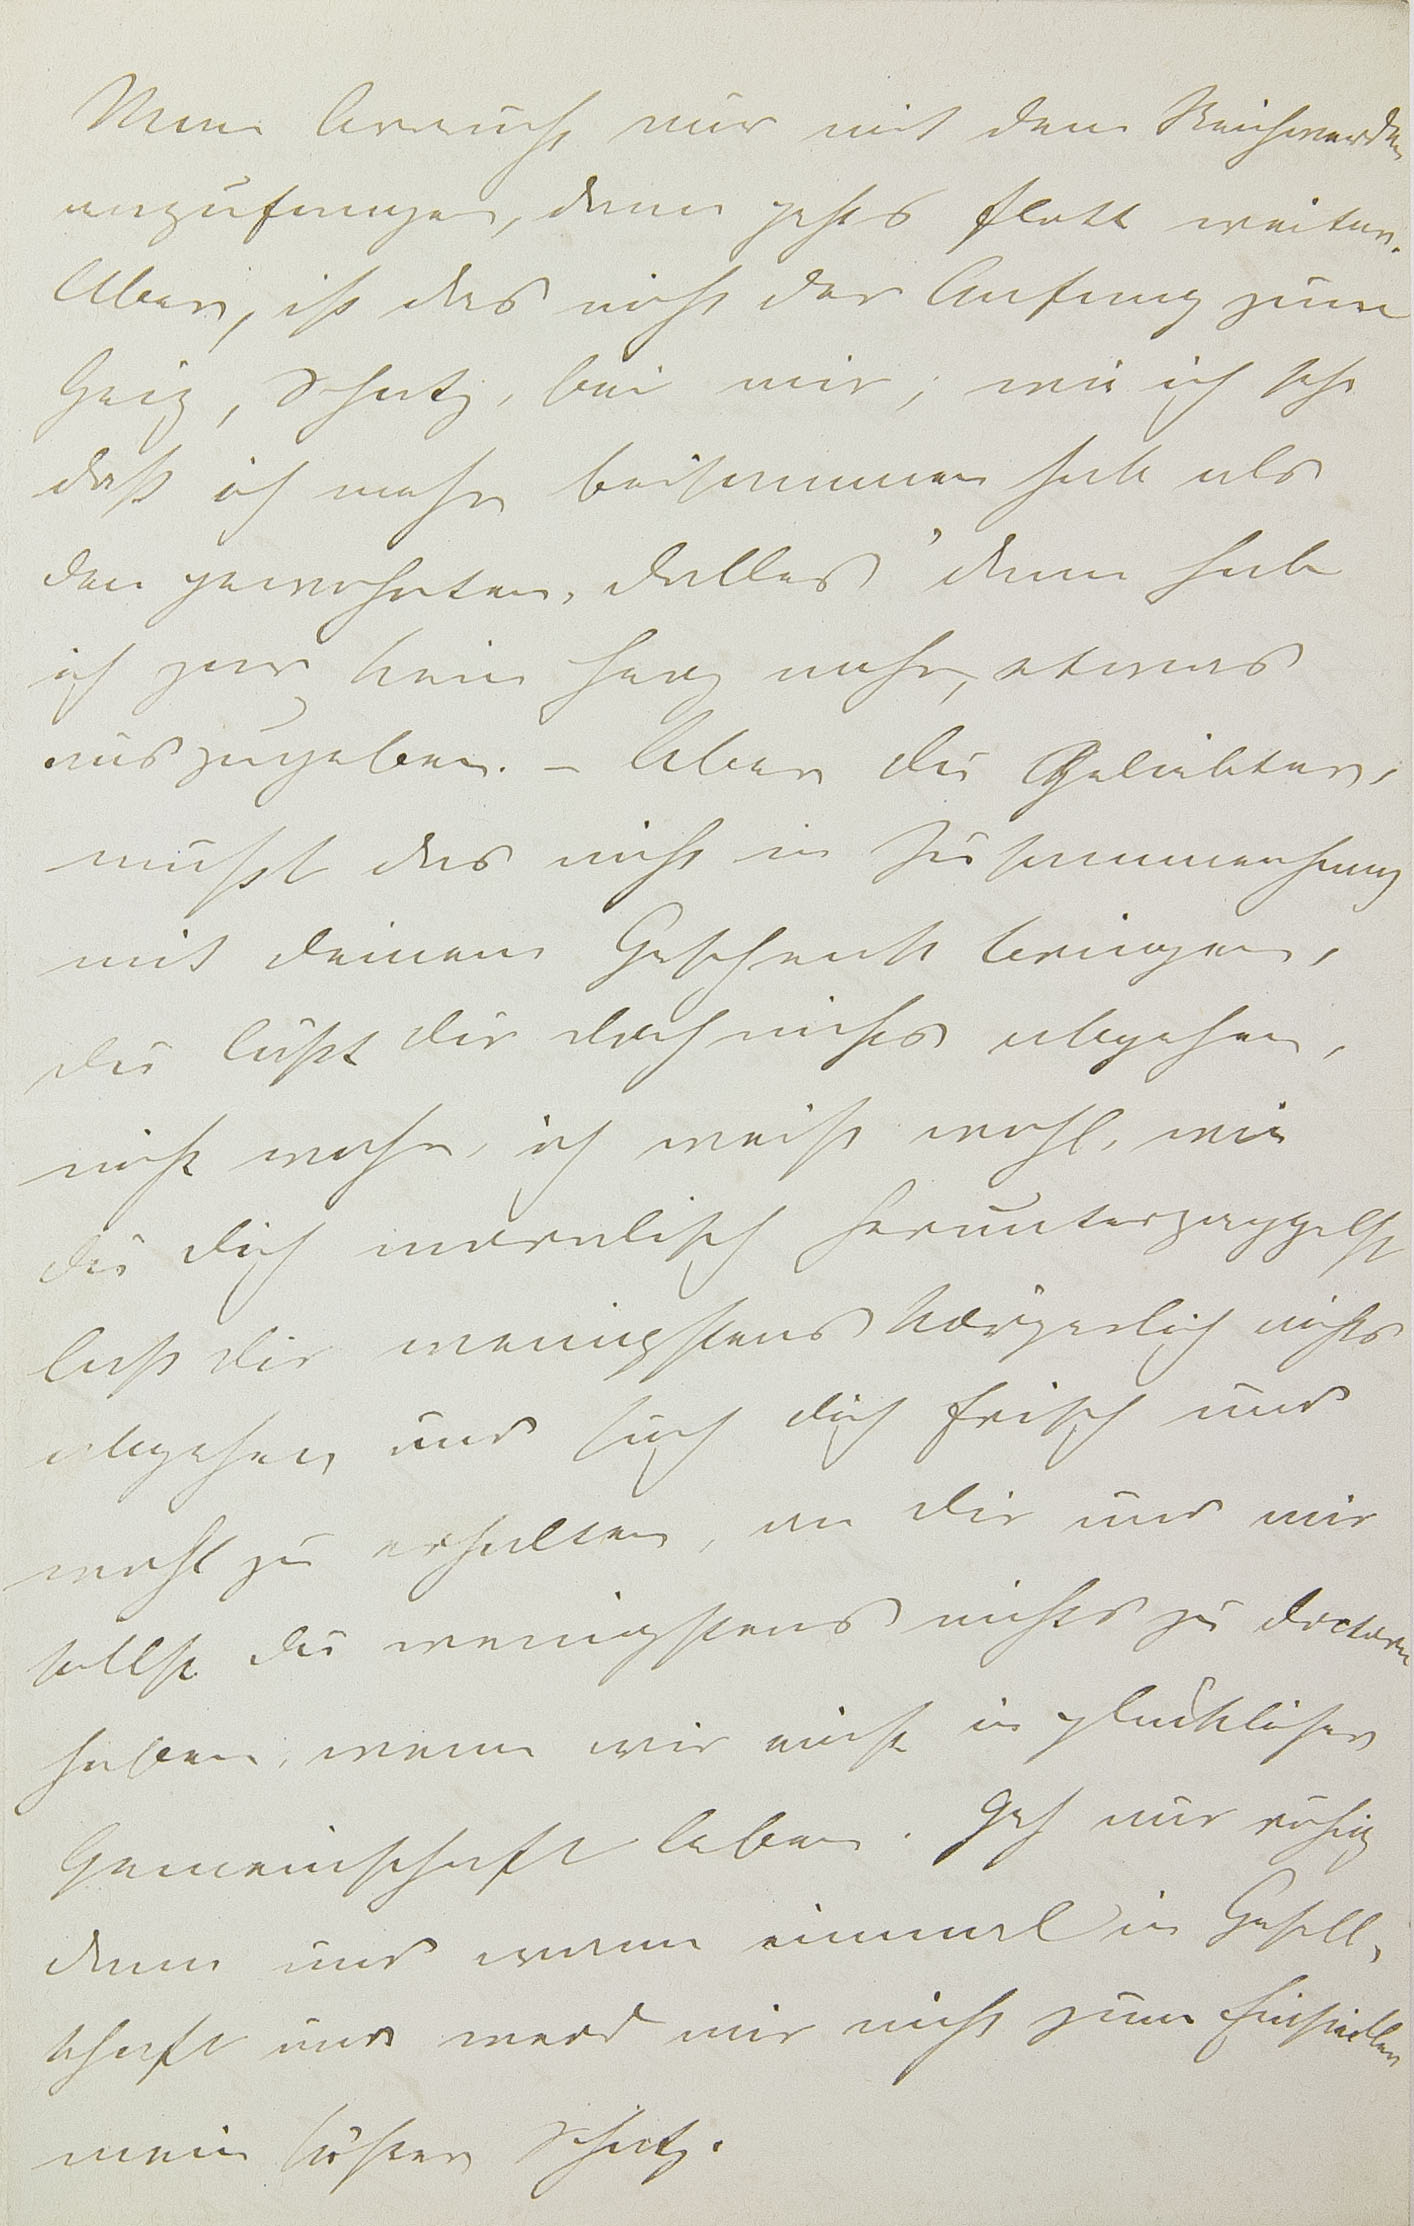 Man braucht nur mit dem Reichwerden
anzufangen, dann gehts flott weiter.
Aber, ist das nicht der Anfang zum
Geiz, Schatz, bei mir; wie ich seh
daß ich mehr beisammen hab als
den gewohnten „Dalles" dann hab
ich gar kein Herz mehr, etwas
auszugeben. – Aber du Geliebter,
mußt das nicht in Zusammenhang
mit deinem Geschenk bringen,
du läßt dir doch nichts abgehen,
nicht wahr, ich weiß wohl, wie
du dich moralisch herunterzappelst
laß dir wenigstens körperlich nichts
abgehen und such dich frisch und
wohl zu erhalten, an dir und mir
sollst du wenigstens nichts zu doctern
haben, wenn wir einst in glücklicher
Gemeinschaft leben. Geh nur ruhig
dann und wann einmal in Gesell-
schaft und werd mir nicht zum Einsiedler
mein süßer Schatz.